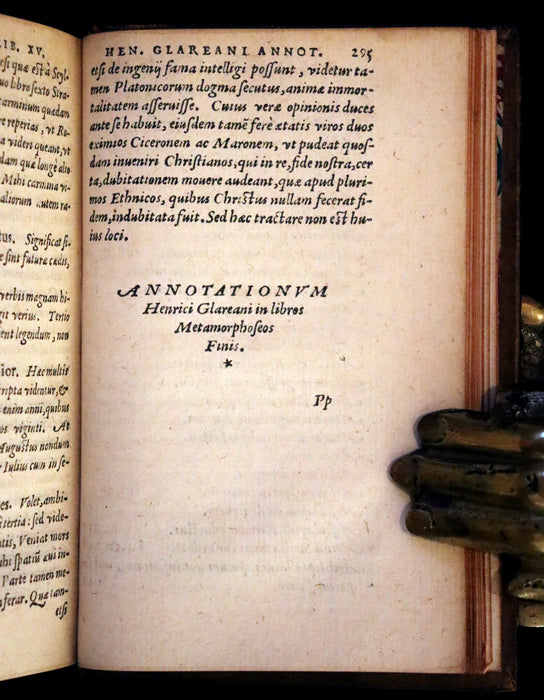 IB. XV.
eſi quæ eſt à Scyl-
uo libro ſexto Stra-
carminum quædam
e reperias, vt Ro-
a videri queant, vt
dam quæ longè alio
Mihi carmina vi-
aliorum autem ra-
tus. Significat ſi-
e ſint futuræ cædis,
verbis magnam hi-
git verius. Tertio
ent legendum, non
ior. Hæc multis
ripta videntur, &
enim anni, quibus
os viginti. At
Auguſtus nondum
Iulius cum in ſe-
es. Volet, ambi-
tertia: ſed vide-
ntis, Veniat mors
hi ſpatiū aui in-
Parte tamen me-
ferar. Quæ tam-
etſi
HEN. GLAREANI ANNOT. 295
etſi de ingenij fama intelligi poſſunt, videtur ta-
men Platonicorum dogma ſecutus, animæ immor-
talitatem aſſeruiſſe. Cuius veræ opinionis duces
ante ſe habuit, eiuſdem tamē ferè ætatis viros duos
eximios Ciceronem ac Maronem, vt pudeat quoſ-
dam inueniri Chriſtianos, qui in re, fide noſtra, cer
ta, dubitationem mouere audeant, quæ apud pluri-
mos Ethnicos, quibus Chriſtus nullam fecerat fi-
dem, indubitata fuit. Sed hæc tractare non eſt hu-
ius loci.
ANNOTATIONVM
Henrici Glareani in libros
Metamorphoſeos
Finis.
*
Pp